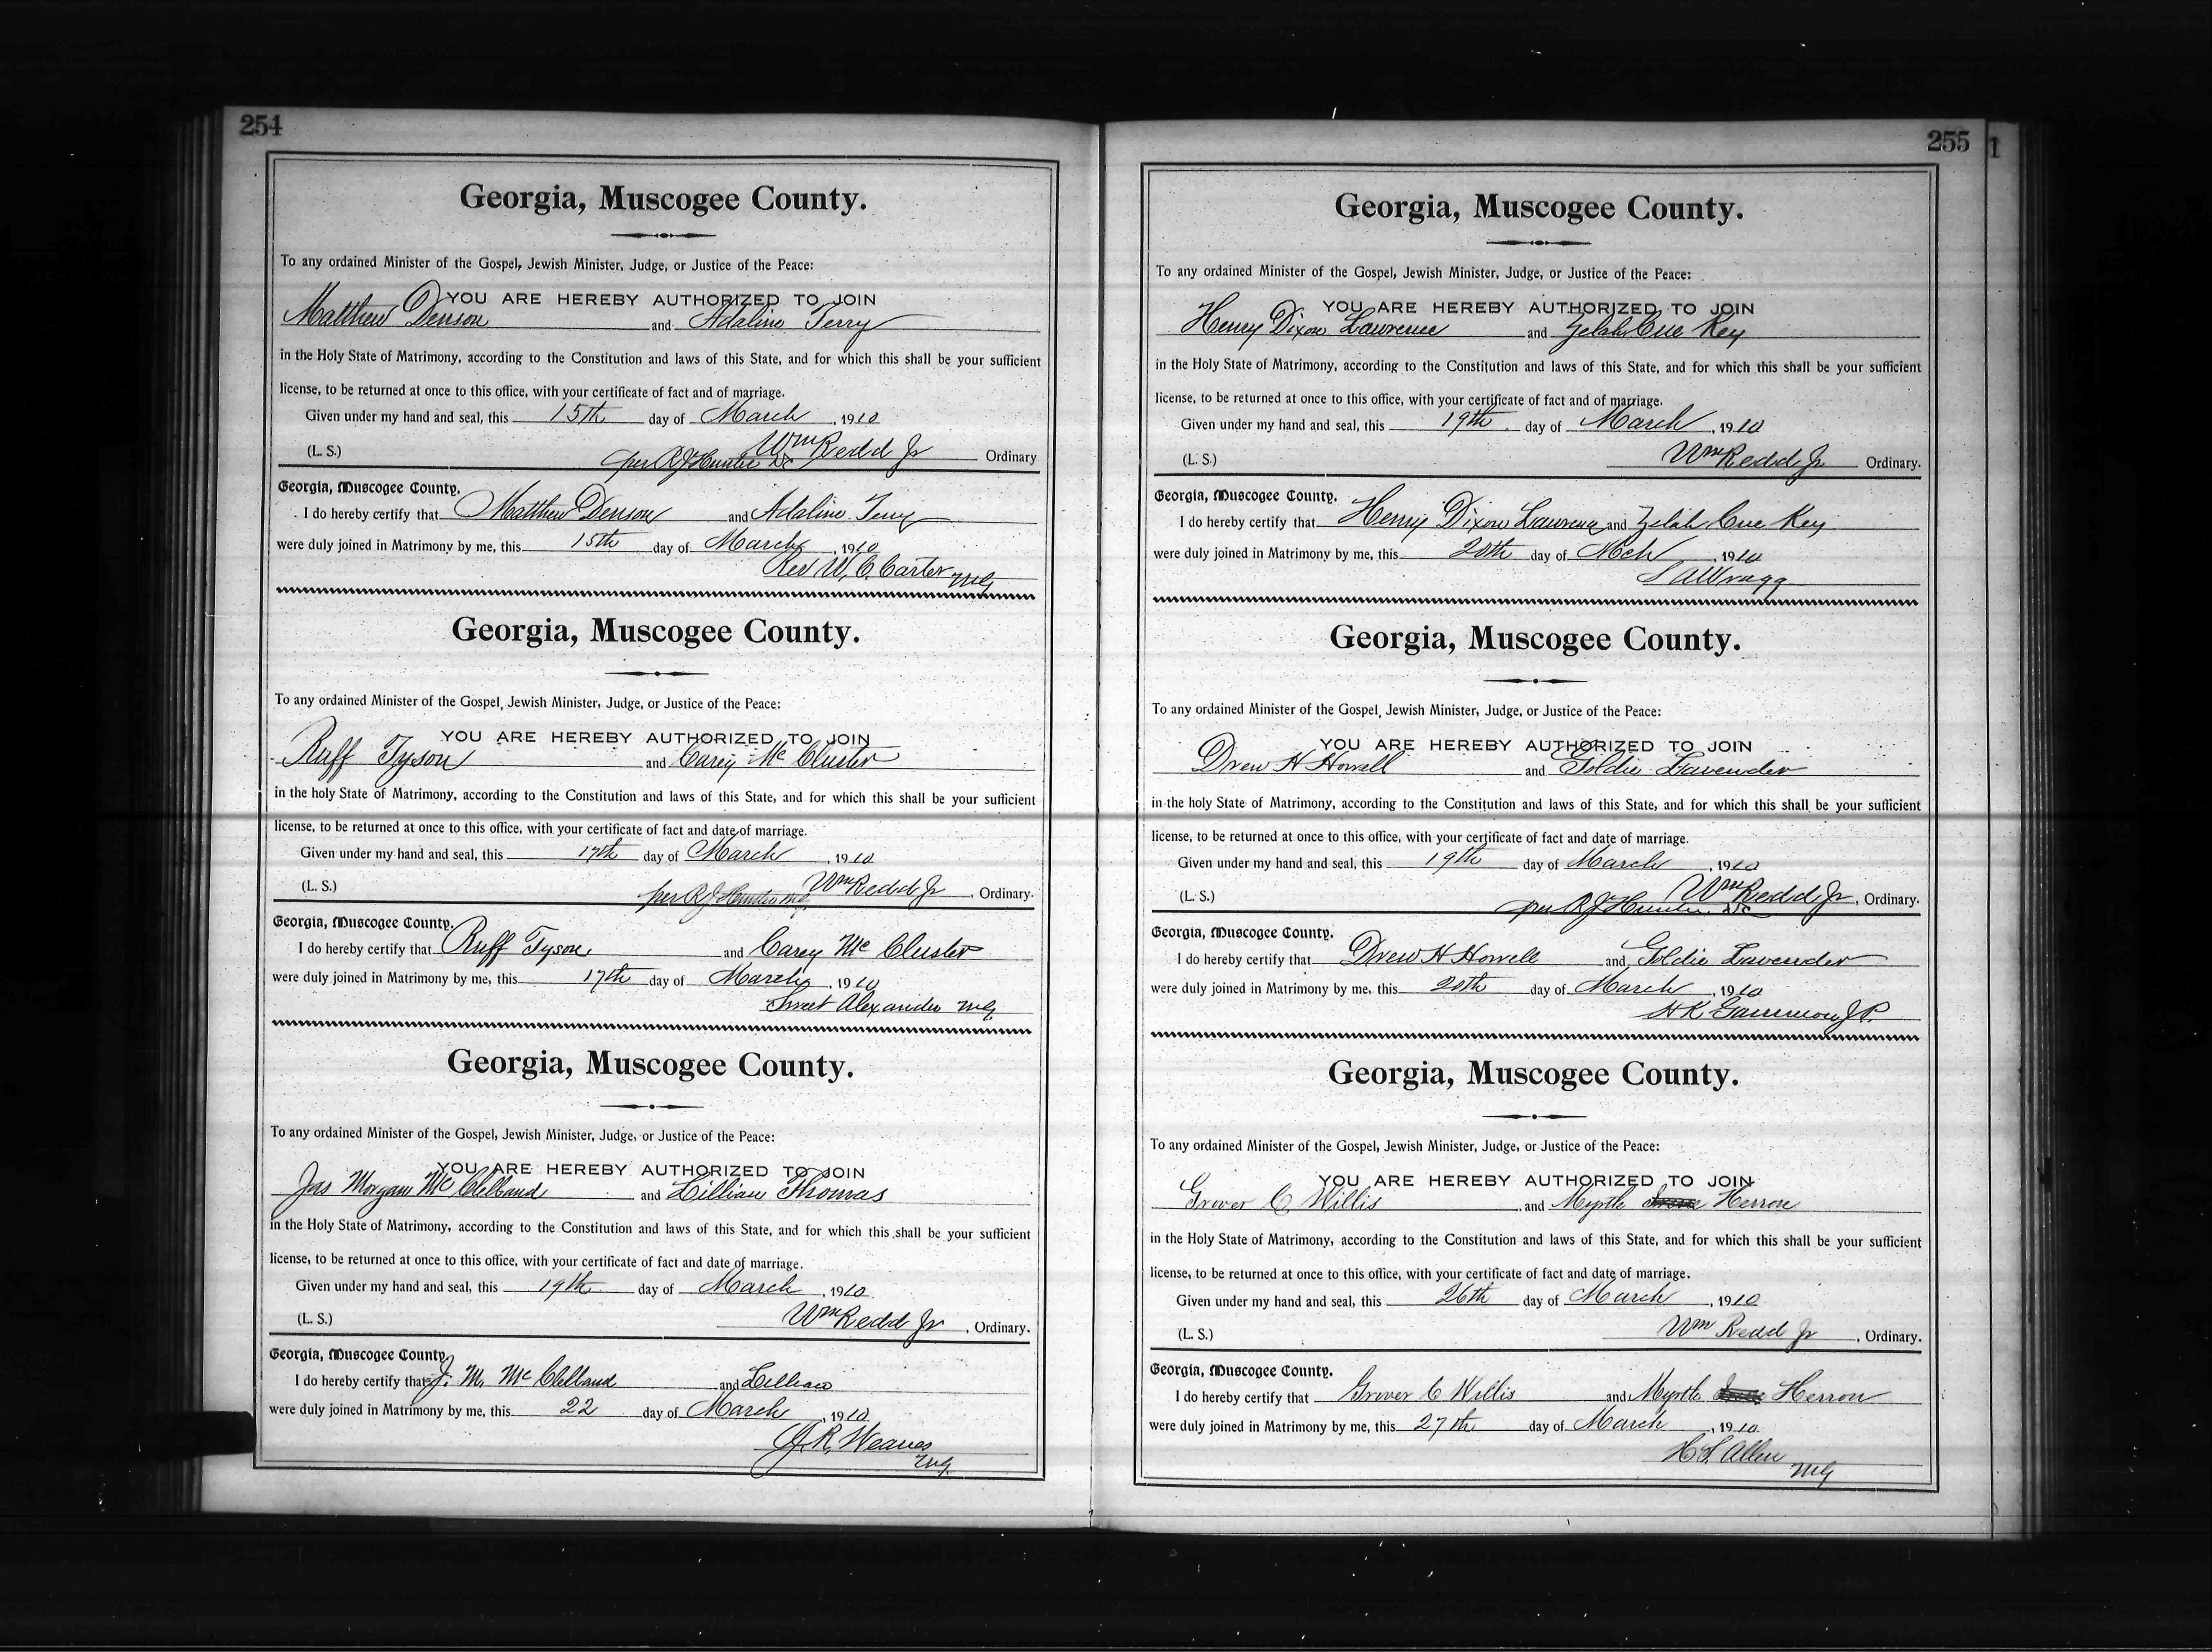 254
Georgia, Muscogee County.
To any ordained Minister of the Gospel, Jewish Minister, Judge, or Justice of the Peace:
YOU ARE HEREBY AUTHORIZED TO JOIN
Matthew Denson and Adaline Terry
in the Holy State of Matrimony, according to the Constitution and laws of this State, and for which this shall be your sufficient
license, to be returned at once to this office, with your certificate of fact and of marriage.
Given under my hand and seal, this 15th day of March, 1910
(L. S.) Wm Redd Jr Ordinary
per R J Hunter DC
Georgia, Muscogee County.
I do hereby certify that Matthew Denson and Adaline Terry
were duly joined in Matrimony by me, this 15th day of March, 1910
Rev W. C. Carter MG
Georgia, Muscogee County.
To any ordained Minister of the Gospel, Jewish Minister, Judge, or Justice of the Peace:
YOU ARE HEREBY AUTHORIZED TO JOIN
Ruff Tyson and Carey McCluster
in the holy State of Matrimony, according to the Constitution and laws of this State, and for which this shall be your sufficient
license, to be returned at once to this office, with your certificate of fact and date of marriage.
Given under my hand and seal, this 17th day of March, 1910
(L. S.) Wm Redd Jr, Ordinary.
per R J Hunter
Georgia, Muscogee County.
I do hereby certify that Ruff Tyson and Carey McCluster
were duly joined in Matrimony by me, this 17th day of March, 1910
Sweet Alexander MG.
Georgia, Muscogee County.
To any ordained Minister of the Gospel, Jewish Minister, Judge, or Justice of the Peace:
YOU ARE HEREBY AUTHORIZED TO JOIN
Jas Morgan McClelland and Lillian Thomas
in the Holy State of Matrimony, according to the Constitution and laws of this State, and for which this shall be your sufficient
license, to be returned at once to this office, with your certificate of fact and date of marriage.
Given under my hand and seal, this 19th day of March, 1910.
(L. S.) Wm Redd Jr, Ordinary.
Georgia, Muscogee County.
I do hereby certify that J. M. McClelland and Lillian
were duly joined in Matrimony by me, this 22 day of March, 1910.
J. R. Weaver
MG.
255
Georgia, Muscogee County.
To any ordained Minister of the Gospel, Jewish Minister, Judge, or Justice of the Peace:
YOU ARE HEREBY AUTHORIZED TO JOIN
Henry Dixon Lawrence and Zelah Cue Key
in the Holy State of Matrimony, according to the Constitution and laws of this State, and for which this shall be your sufficient
license, to be returned at once to this office, with your certificate of fact and of marriage.
Given under my hand and seal, this 19th. day of March, 1910
(L. S.) Wm Redd Jr Ordinary.
Georgia, Muscogee County.
I do hereby certify that Henry Dixon Lawrence and Zelah Cue Key
were duly joined in Matrimony by me, this 20th day of Mch, 1910
S A Wragg
Georgia, Muscogee County.
To any ordained Minister of the Gospel, Jewish Minister, Judge, or Justice of the Peace:
YOU ARE HEREBY AUTHORIZED TO JOIN
Drew H Howell and Goldie Lavender
in the holy State of Matrimony, according to the Constitution and laws of this State, and for which this shall be your sufficient
license, to be returned at once to this office, with your certificate of fact and date of marriage.
Given under my hand and seal, this 19th day of March, 1910
(L. S.) Wm Redd Jr, Ordinary.
per R J Hunter DC
Georgia, Muscogee County.
I do hereby certify that Drew H Howell and Goldie Lavender
were duly joined in Matrimony by me, this 20th day of March, 1910
H K Gammon J P.
Georgia, Muscogee County.
To any ordained Minister of the Gospel, Jewish Minister, Judge, or Justice of the Peace:
YOU ARE HEREBY AUTHORIZED TO JOIN
Grover C Willis and Myrtle Herron
in the Holy State of Matrimony, according to the Constitution and laws of this State, and for which this shall be your sufficient
license, to be returned at once to this office, with your certificate of fact and date of marriage.
Given under my hand and seal, this 26th day of March, 1910.
(L. S.) Wm Redd Jr, Ordinary.
Georgia, Muscogee County.
I do hereby certify that Grover C Willis and Myrtle Herron
were duly joined in Matrimony by me, this 27th day of March, 1910.
H. S. Allen
MG